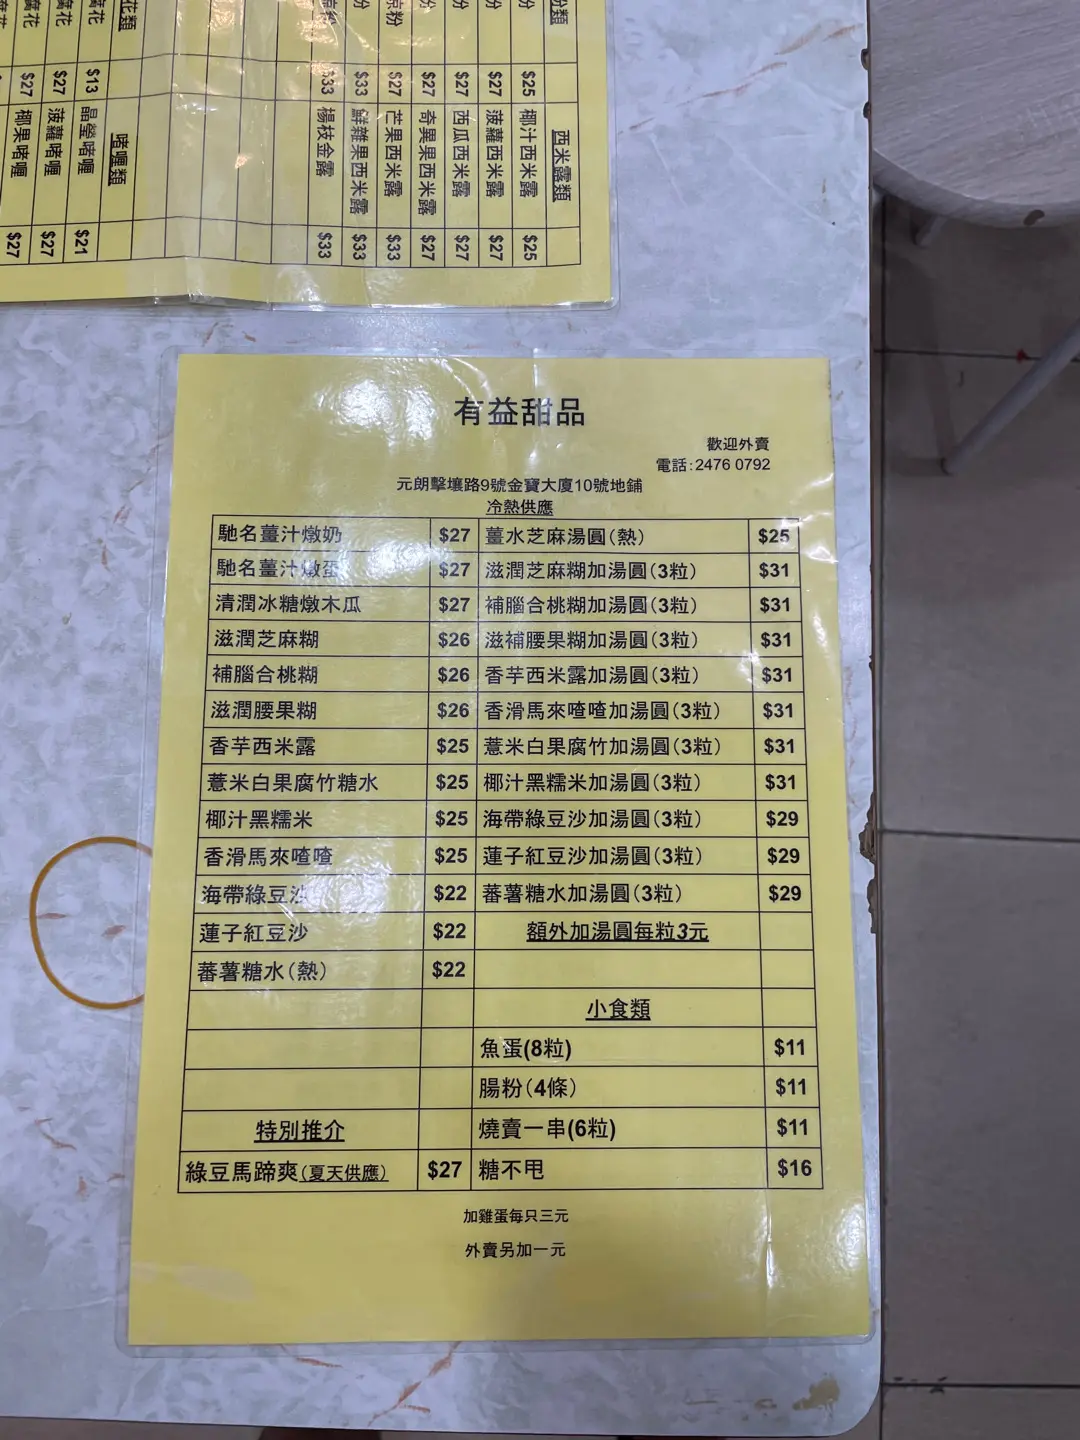 份類
西米露類
份 $25 椰汁西米露 $25
份 $27 菠蘿西米露 $27
份 $27 西瓜西米露 $27
份 $27 奇異果西米露 $27
涼粉 $27 芒果西米露 $33
$33 鮮雜果西米露 $33
$33 楊枝金露 $33
花類
啫喱類
腐花 $13 晶瑩啫喱 $21
腐花 $27 菠蘿啫喱 $27
腐花 $27 椰果啫喱 $27
有益甜品
歡迎外賣
電話:2476 0792
元朗擊壤路9號金寶大廈10號地鋪
冷熱供應
馳名薑汁燉奶 $27 薑水芝麻湯圓(熱) $25
馳名薑汁燉蛋 $27 滋潤芝麻糊加湯圓(3粒) $31
清潤冰糖燉木瓜 $27 補腦合桃糊加湯圓(3粒) $31
滋潤芝麻糊 $26 滋補腰果糊加湯圓(3粒) $31
補腦合桃糊 $26 香芋西米露加湯圓(3粒) $31
滋潤腰果糊 $26 香滑馬來喳喳加湯圓(3粒) $31
香芋西米露 $25 薏米白果腐竹加湯圓(3粒) $31
薏米白果腐竹糖水 $25 椰汁黑糯米加湯圓(3粒) $31
椰汁黑糯米 $25 海帶綠豆沙加湯圓(3粒) $29
香滑馬來喳喳 $25 蓮子紅豆沙加湯圓(3粒) $29
海帶綠豆沙 $22 蕃薯糖水加湯圓(3粒) $29
蓮子紅豆沙 $22 額外加湯圓每粒3元
蕃薯糖水(熱) $22
小食類
魚蛋(8粒) $11
腸粉(4條) $11
特別推介 燒賣一串(6粒) $11
綠豆馬蹄爽(夏天供應) $27 糖不甩 $16
加雞蛋每只三元
外賣另加一元